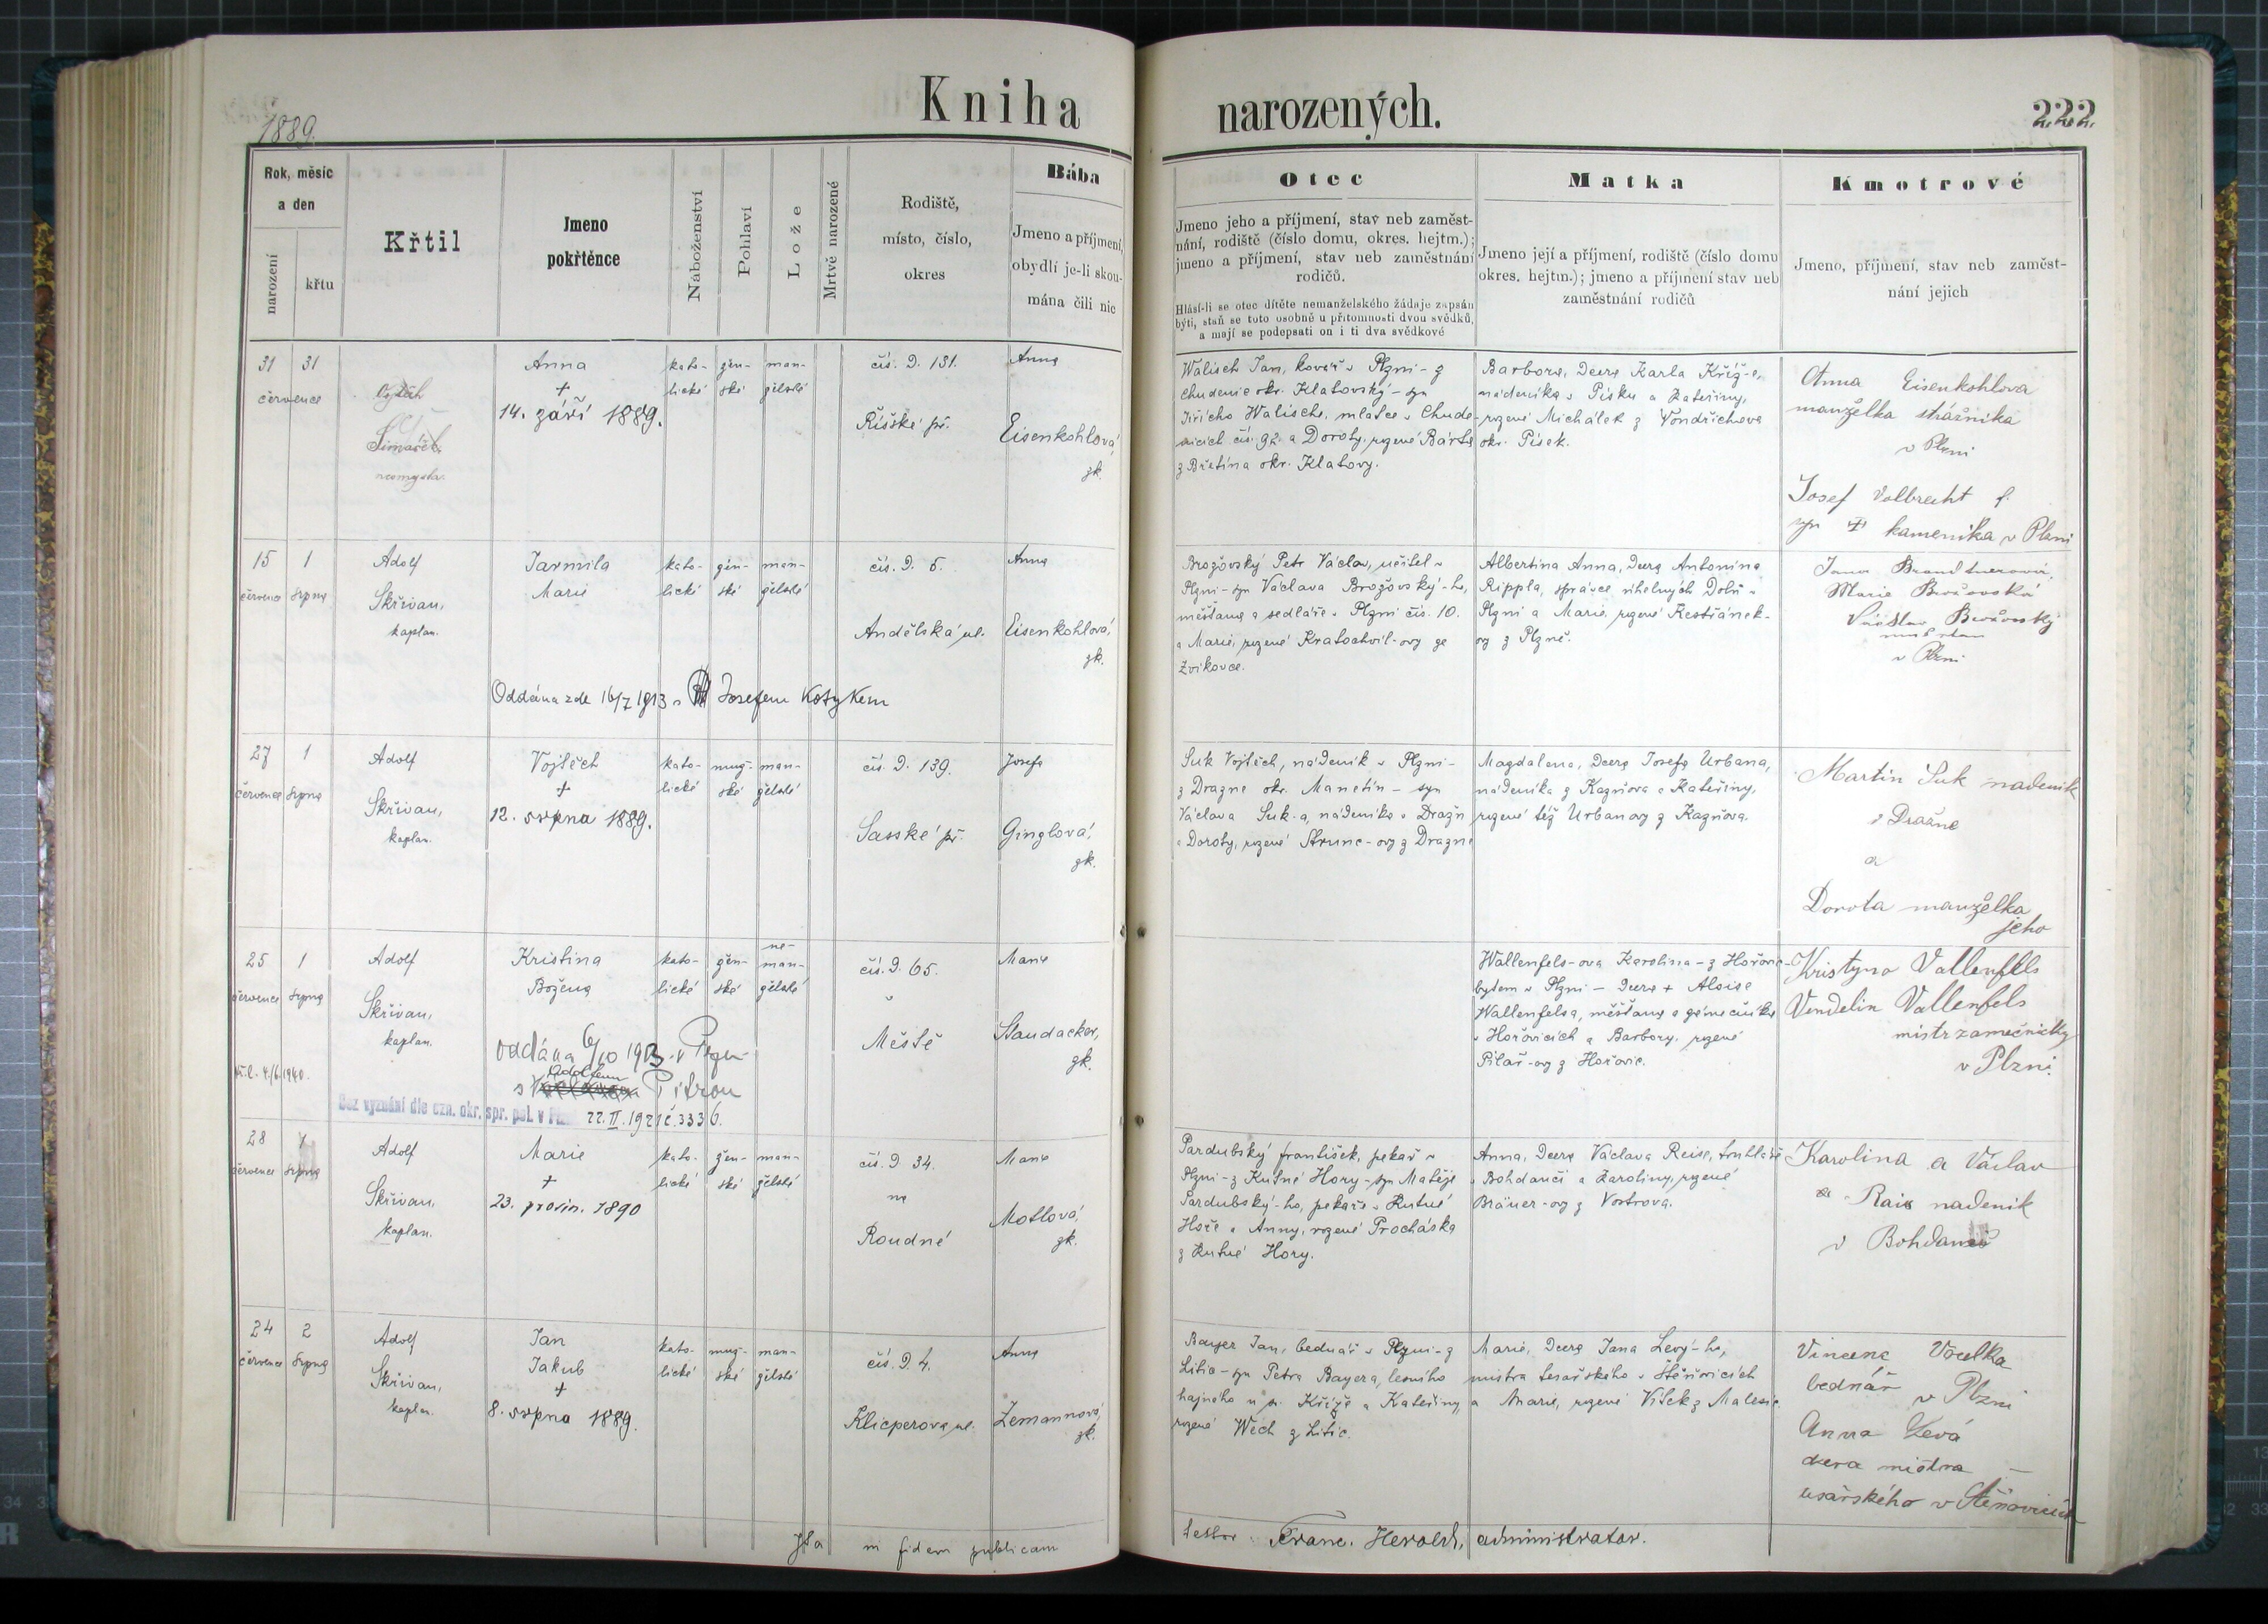 Kniha narozených.
1889.
222
Rok, měsíc a den
narození
křtu
Křtil
Jmeno pokřtěnce
Náboženství
Pohlaví
Lože
Mrtvě narozené
Rodiště, místo, číslo, okres
Bába
Jmeno a příjmení, obydlí je-li skoumána čili nic
Otec
Jmeno jeho a příjmení, stav neb zaměst-
nání, rodiště (číslo domu, okres. hejtm.);
jmeno a příjmení, stav neb zaměstnání
rodičů.
Hlásí-li se otec dítěte nemanželského žádaje zapsán
býti, staň se toto osobně u přítomnosti dvou svědků,
a mají se podepsati on i ti dva svědkové
Matka
Jmeno její a příjmení, rodiště (číslo domu
okres. hejtm.); jmeno a příjmení stav neb
zaměstnání rodičů
Kmotrové
Jmeno, příjmení, stav neb zaměst-
nání jejich
31 31
července
Anna
+
14. září 1889.
kato-
lické
žen-
ské
man-
želské
čís. D. 131.
Říšské př.
Anna
Eisenkohlová,
zk.
Walisch Jan, kovář v Plzni - z
Chudenic okr. Klatovský - syn
Jiřího Walische, mlatce v Chude-
nicích čís. 92. a Doroty, rozené Bárta
z Břetína okr. Klatovy.
Barbora, dcera Karla Kříž-e,
nádeníka v Písku a Kateřiny,
rozené Michálek z Vondřichova
okr. Písek.
Anna Eisenkohlova
manželka strážníka
v Plzni
Josef Vollbrecht
syn kameníka v Plzni
15 1
července srpna
Adolf
Skřivan,
kaplan.
Jarmila
Marie
kato-
lické
žen-
ské
man-
želské
čís. D. 5.
Andělská ul.
Anna
Eisenkohlová,
zk.
Oddána zde 16/7 1913 s Josefem Kotykem
Brožovský Petr Václav, učitel v
Plzni - syn Václava Brožovský-ho,
měšťana a sedláře v Plzni čís. 10.
a Marie, rozené Kratochvil-ovy ze
Zvíkovce.
Albertina Anna, dcera Antonina
Rippla, správce uhelných Dolů v
Plzni a Marie, rozené Kestřánek-
ovy z Plzně.
Marie Brožovská
Brožovský
v Plzni
27 1
července srpna
Adolf
Skřivan,
kaplan.
Vojtěch
+
12. srpna 1889.
kato-
lické
muž-
ské
man-
želské
čís. D. 139.
Sasské př.
Josefa
Ginglová,
zk.
Suk Vojtěch, nádeník v Plzni -
z Dražne okr. Manetín - syn
Václava Suk-a, nádeníka v Dražn
a Doroty, rozené Strunc-ovy z Dražne
Magdalena, dcera Josefa Urbana,
nádeníka z Kazňova a Kateřiny,
rozené též Urbanovy z Kazňova.
Martin Suk nadenik
v Dražne
a
Dorota manželka
jeho
25 1
července srpna
Adolf
Skřivan,
kaplan.
Kř. l. 4./6. 1940.
Kristina
Božena
kato-
lické
žen-
ské
ne-
man-
želské
čís. D. 65.
v
Městě
Marie
Staudacher,
zk.
oddána 6/10 1913 v Plzni
s Adolfem Pitrou
Bez vyznání dle ozn. okr. spr. pol. v 22. II. 1921 č. 3336.
Wallenfels-ova Karolina - z Hořovic
bytem v Plzni - dcera + Aloise
Wallenfelsa, měšťana a zámečníka
v Hořovicích a Barbory, rozené
Pilař-ovy z Hořovic.
Kristyna Vallenfels
Vendelin Vallenfels
mistr zamečnický
v Plzni.
28 1
července srpna
Adolf
Skřivan,
kaplan.
Marie
+
23. prosin. 1890
kato-
lické
žen-
ské
man-
želské
čís. D. 34.
na
Roudné
Marie
Motlová,
zk.
Pardubský František, pekař v
Plzni - z Kutné Hory - syn Matěje
Pardubský-ho, pekaře v Kutné
Hoře a Anny, rozené Procháska
z Kutné Hory.
Anna, dcera Václava Reise, truhláře
v Bohdanči a Karoliny, rozené
Bräuer-ovy z Vostrova.
Karolina a Václav
Rais nadenik
v Bohdanči
24 2
července srpna
Adolf
Skřivan,
kaplan.
Jan
Jakub
+
8. srpna 1889.
kato-
lické
muž-
ské
man-
želské
čís. D. 4.
Klicperova ul.
Anna
Zemannová,
zk.
Bayer Jan, bednář v Plzni - z
Litic - syn Petra Bayera, lesního
hajného u sv. Kříže a Kateřiny,
rozené Wich z Litic.
Marie, dcera Jana Levý-ho,
mistra tesařského v Štěňovicích
a Marie, rozené Vítek z Malesic.
Vincenc Voelka
bednář v Plzni
Anna Levá
dcera mistra
tesařského v Štěňovicích
Ita in fidem publicam
testor. Franc. Herold, administrator.